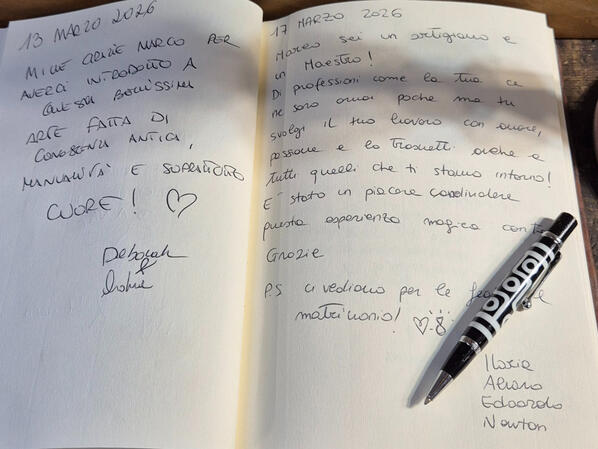 13 MARZO 2026
MILLE GRAZIE MARCO PER
AVERCI INTRODOTTO A
QUESTA BELLISSIMA
ARTE FATTA DI
CONOSCENZA ANTICA,
MANUALITÀ E SOPRATTUTTO
CUORE!
Deborah
&
17 MARZO 2026
Marco sei un artigiano e
un Maestro!
Di professioni come la tua ce
ne sono ormai poche ma tu
svolgi il tuo lavoro con amore,
passione e lo trasmetti anche a
tutti quelli che ti stanno intorno!
E' stato un piacere condividere
questa esperienza magica con
Grazie
P.S ci vediamo per le
matrimonio!
Ilaria
Edoardo
Newton